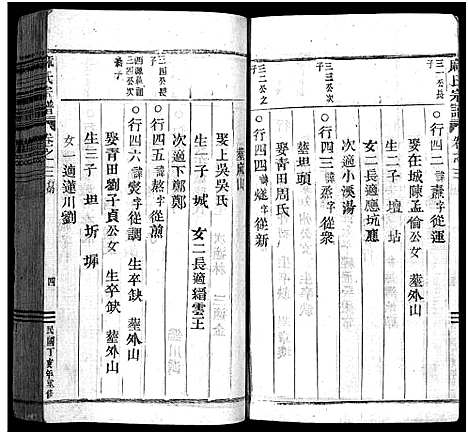 麻氏宗譜 卷之三
三一公長子
○行四二 諱 字從運
娶在城陳孟倫公女 葬外山
生二子 壇 坫
女二長適應坑應
次適小溪湯
○行四三 諱 字從衆
葬坦頭
三二公之子
○行四四 諱 字從新
娶青田周氏
葬麻山
娶上吳吳氏
生一子 城 女二長適縉雲王
次適下鄭鄭
三四公長子
○行四五 諱熬字從薰
三四公次子
○行四六 諱 字從調 生卒缺 葬外山
娶青田劉子貞公女 生卒缺 葬外山
生三子 坦 圻 墀
女一適蓮川劉
麻氏宗譜 卷之三
四
民國丁亥年重修